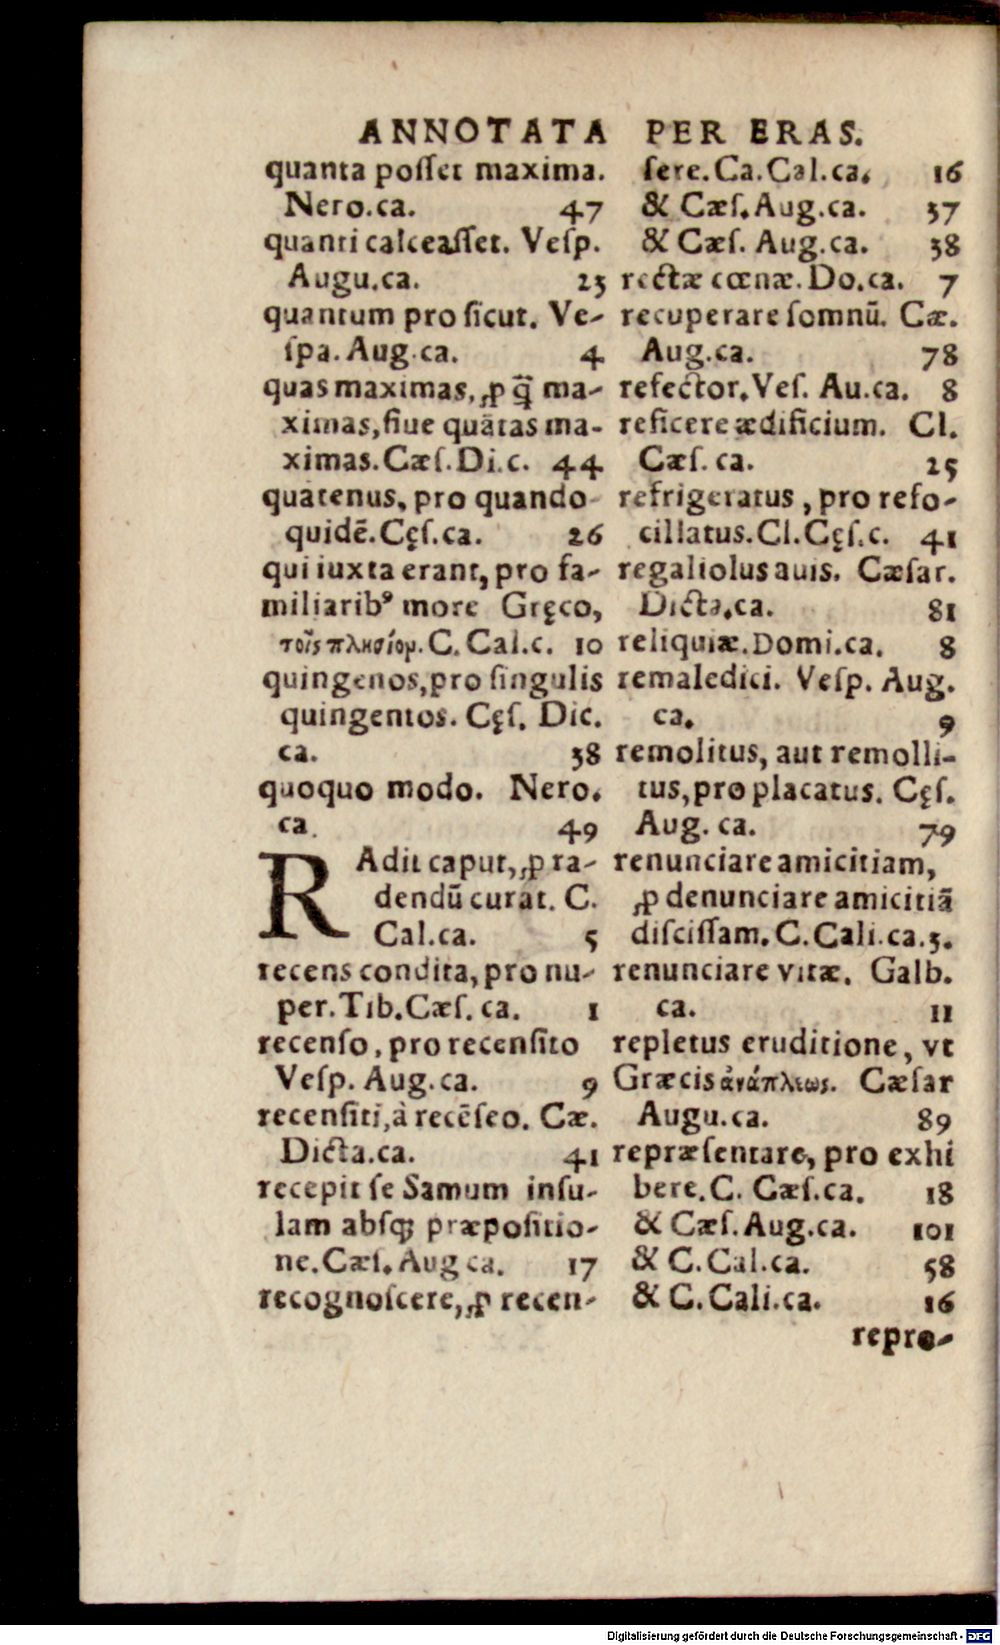 ANNOTATA PER ERAS.
quanta poſſet maxima.
Nero.ca. 47
quanti calceaſſet. Veſp.
Augu.ca. 23
quantum pro ſicut. Ve-
ſpa. Aug.ca. 4
quas maximas, ꝓ q̃ ma-
ximas, ſiue quãtas ma-
ximas. Cæſ. Di.c. 44
quatenus, pro quando
quidẽ. Cęſ.ca. 26
qui iuxta erant, pro fa-
miliaribꝰ more Gręco,
τοῖς πλησίομ. C. Cal.c. 10
quingenos, pro ſingulis
quingentos. Cęſ. Dic.
ca. 38
quoquo modo. Nero.
ca. 49
RAdit caput, ꝓ ra-
dendũ curat. C.
Cal.ca. 5
recens condita, pro nu-
per. Tib. Cæſ. ca. 1
recenſo, pro recenſito
Veſp. Aug.ca. 9
recenſiti, à recẽſeo. Cæ.
Dicta.ca. 41
recepit ſe Samum inſu-
lam abſq; præpoſitio-
ne. Cæſ. Aug ca. 17
recognoſcere, ꝓ recen-
ſere. Ca. Cal.ca. 16
& Cæſ. Aug.ca. 37
& Cæſ. Aug.ca. 38
rectæ cœnæ. Do.ca. 7
recuperare ſomnũ. Cæ.
Aug.ca. 78
refector. Veſ. Au.ca. 8
reficere ædificium. Cl.
Cæſ. ca. 25
refrigeratus, pro refo-
cillatus. Cl. Cęſ.c. 41
regaliolus auis. Cæſar.
Dicta.ca. 81
reliquiæ. Domi.ca. 8
remaledici. Veſp. Aug.
ca. 9
remolitus, aut remolli-
tus, pro placatus. Cęſ.
Aug. ca. 79
renunciare amicitiam,
ꝓ denunciare amicitiã
diſciſſam. C. Cali.ca.3.
renunciare vitæ. Galb.
ca. 11
repletus eruditione, vt
Græcis ἀνάπλεως. Cæſar
Augu.ca. 89
repræſentare, pro exhi
bere. C. Cæſ.ca. 18
& Cæſ. Aug.ca. 101
& C. Cal.ca. 58
& C. Cali.ca. 16
repre-
Digitalisierung gefördert durch die Deutsche Forschungsgemeinschaft - DFG